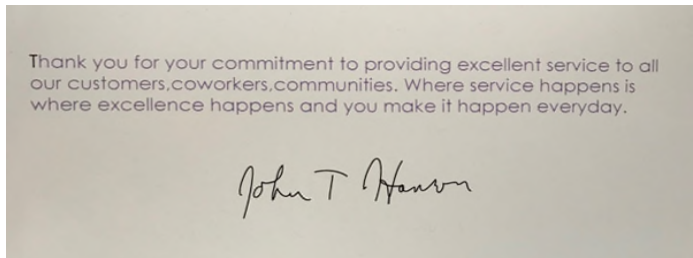 Thank you for your commitment to providing excellent service to all
our customers,coworkers,communities. Where service happens is
where excellence happens and you make it happen everyday.
John T Hanson